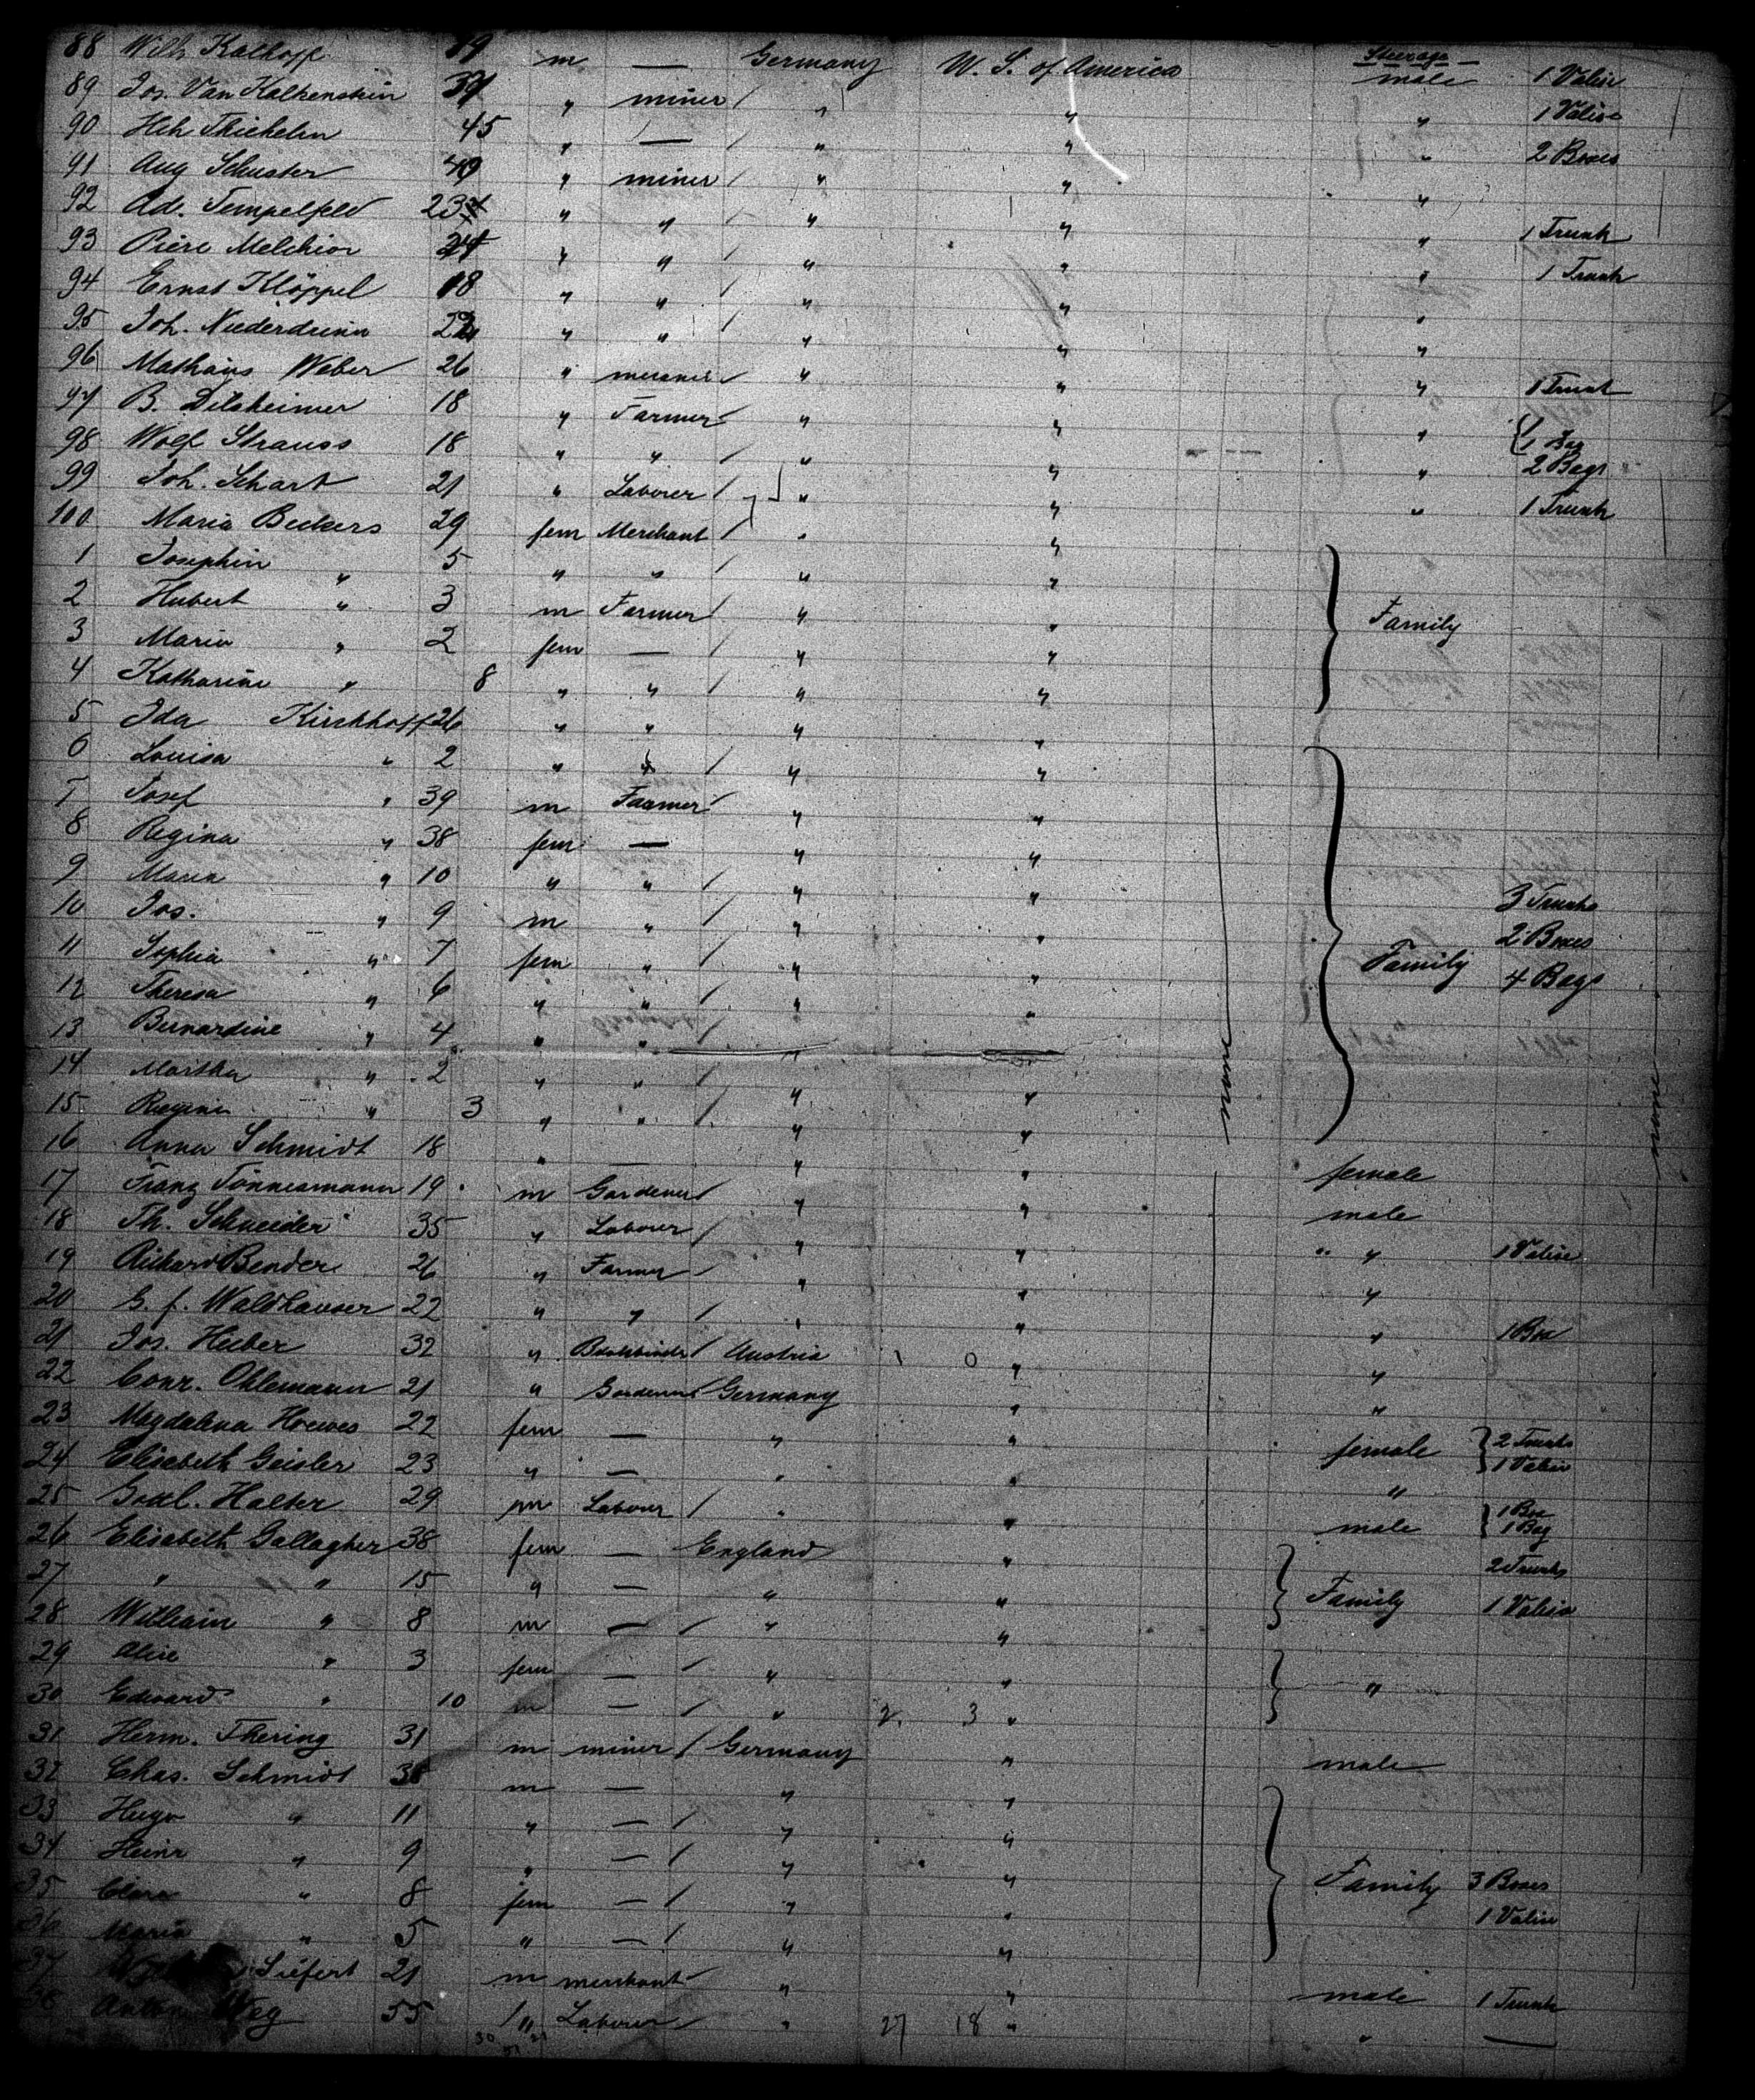 Steerage
88 Wilh Kalhoff 19 m — Germany U. S. of America male 1 Valise
89 Jos. Van Kalkenstein 39 " miner / " " " 1 Valise
90 Hch Thiehelm 45 " — / " " " 2 Boxes
91 Aug Schuster 49 " miner / " " "
92 Ad. Tempelfeld 23 " " / " " " 1 Trunk
93 Piere Melchior 24 " " / " " " 1 Trunk
94 Ernst Klöppel 18 " " / " " "
95 Joh. 22 " " / " " "
96 Mathays Weber 26 " / " " " 1 Trunk
97 B. Dilsheimer 18 " Farmer / " " " 1 Bag
98 Wolf Strauss 18 " " / " " " 2 Bags
99 Joh. Schart 21 " Laborer / " " " 1 Trunk
100 Maria Beckers 29 fem Merchant / " "
1 Josephin " 5 " " / " "
2 Hubert " 3 m Farmer / " " Family
3 Maria " 2 fem — / " "
4 Katharine " 8 " " / " "
5 Ida Kirchhoff 26 " " " "
6 Louisa " 2 " " / " "
7 Josef " 39 m Farmer / " "
8 Regina " 38 fem — " "
9 Maria " 10 " " / " " 3 Trunks
10 Jos. " 9 m " / " " 2 Boxes
11 Sophia " 7 fem " / " " Family 4 Bags
12 Theresa " 6 " " / " "
13 Bernardine " 4 " " / " "
14 Martha " 2 " " / " " none none
15 Regina " 3 " " / " "
16 Anna Schmidt 18 " — " " female
17 Franz Tönnesmann 19 m Gardener / " " male
18 Th. Schneider 35 " Laborer / " " " 1 Valise
19 Richard Bender 26 " Farmer / " " "
20 G. f. Waldhauser 22 " " / " " " 1 Box
21 Jos. Hieber 32 " Bookbinder / Austria 1 0 " "
22 Conr. Ohlemann 21 " Gardener / Germany " "
23 Magdalena Hoewes 22 fem — " " female 2 Trunks 1 Valise
24 Elisabeth Geisler 23 " — " " "
25 Gottl. Halter 29 m Laborer / " " male 1 Box 1 Bag
26 Elisabeth Gallagher 38 fem — England " 2 Trunks
27 " " 15 " — " " Family 1 Valise
28 William " 8 m — / " "
29 Alice " 3 fem — / " " "
30 Edward " 10 m — / " 2 3 "
31 Herm. Thering 31 m miner / Germany " male
32 Chas. Schmidt 38 m — " "
33 Hugo " 11 " — / " "
34 Heinr " 9 " — / " "
35 Clara " 8 fem — / " " Family 3 Boxes
36 Maria " 5 " — / " " 1 Valise
37 Siefert 21 m merchant / " " male 1 Trunk
38 Anton Weg 55 / " Laborer " 27 18 " " —
30 21